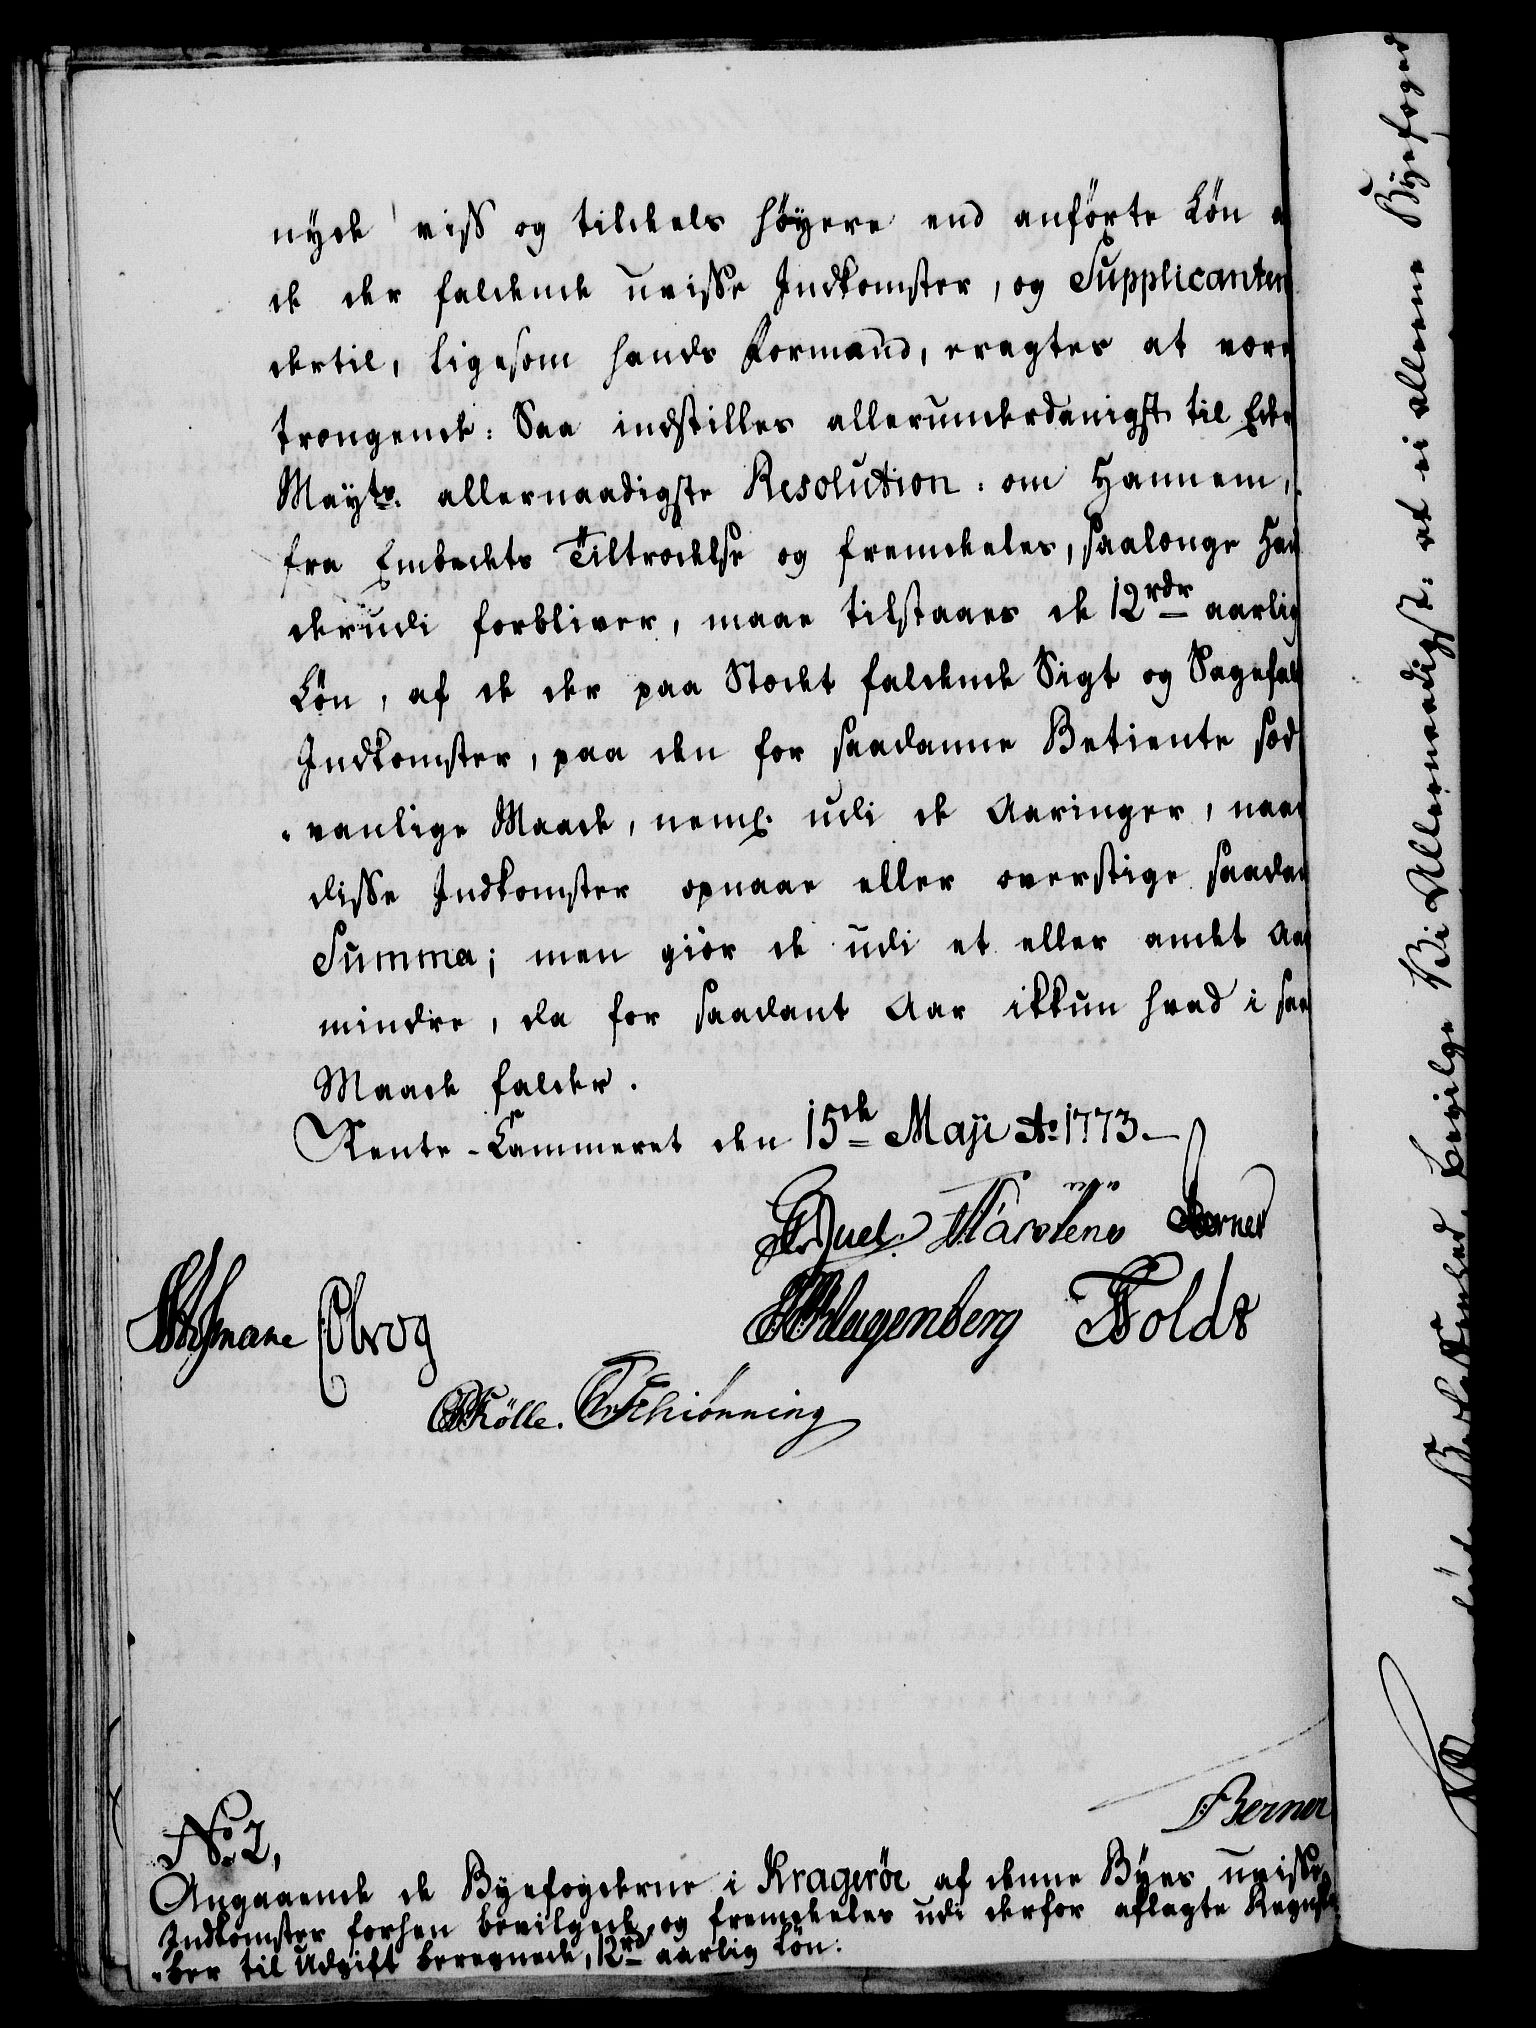 nyde viss og tildels höyere end anförte Lön a
de der faldende uvisse Indkomster, og Supplicanten
dertil, ligesom hands Formand, eragtes at være
trængende: Saa indstilles allerunderdanigst til Eders
Mayts. allernaadigste Resolution: om Hannem,
fra Embedets Tiltrædelse og fremdeles, saalænge Han
derudi forbliver, maae tilstaaes de 12 rdr aarlig
Lön, af de der paa Stædet faldende Sigt og Sagefals
Indkomster, paa den for saadanne Betiente sæd
-vanlige Maade, neml. udi de Aaringer, naar
disse Indkomster opnaae eller overstige saadan
Summa; men giör de udi et eller andet Aar
mindre, da for saadant Aar ikkun hvad i saa
Maade falder.
Rente-Cammeret den 15de Maji Ao 1773.
Juel. Mårtens Berner
Klugenberg Holdt
Obrog
Kölle. Schiönning
Berner
No. 2,
Angaaende de Byefogderne i Krageröe af denne Byes uvisse
Indkomster forhen bevilgede, og fremdeles udi derfor aflagte Regnska
-ber til Udgift beregnede, 12 rd aarlig Lön.
Vi Allernaadigst: at ei alleene Byefoged
bevilge